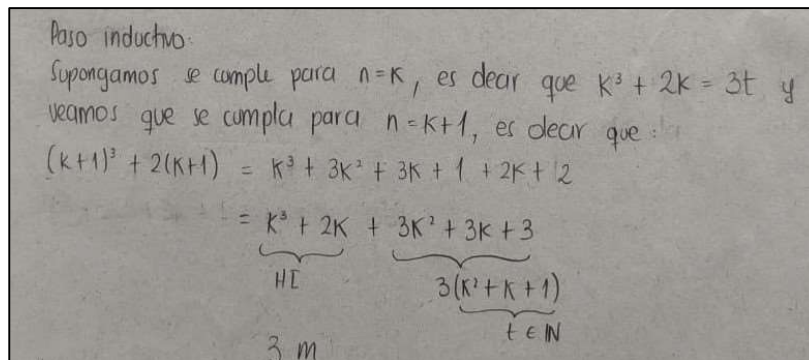 Paso inductivo:
Supongamos se cumple para n=K, es decir que K³ + 2K = 3t y
veamos que se cumpla para n=K+1, es decir que:
(K+1)³ + 2(K+1) = K³ + 3K² + 3K + 1 + 2K + 2
= K³ + 2K + 3K² + 3K + 3
HI 3(K² + K + 1)
t ∈ IN
3 m